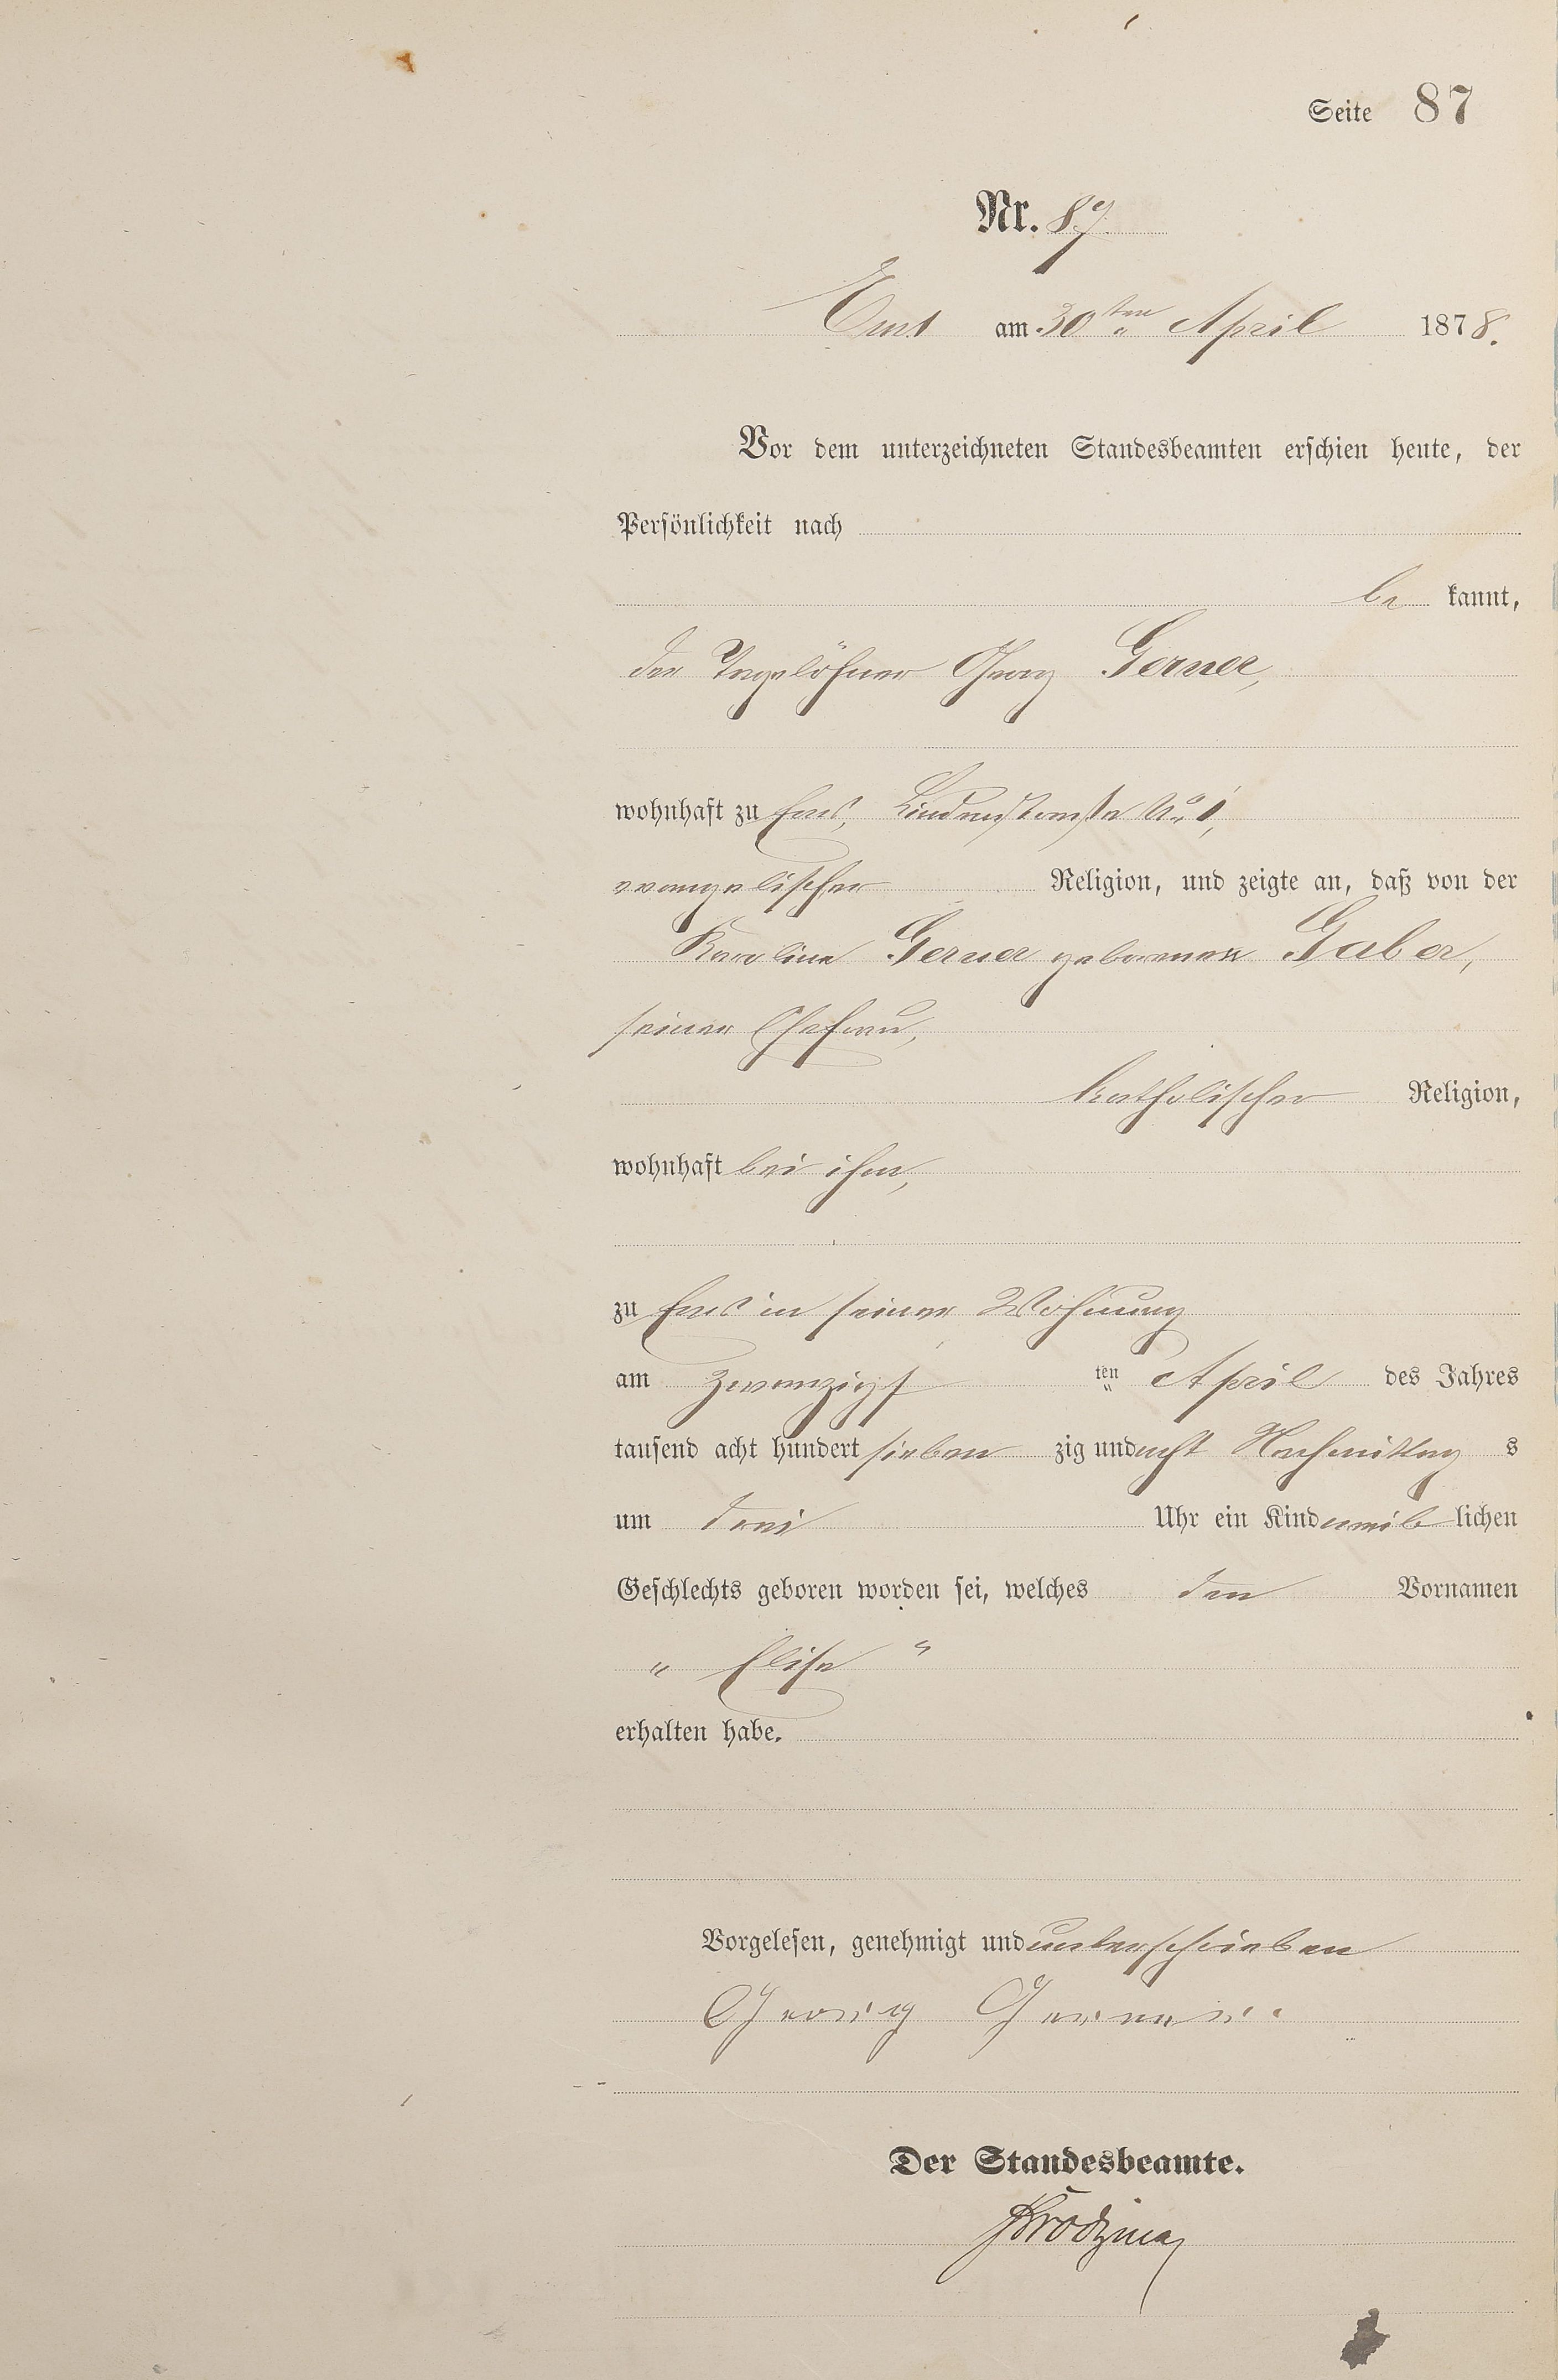 Seite 87
Nr. 87.
Ems am 30ten April 1878.
Vor dem unterzeichneten Standesbeamten erschien heute, der
Persönlichkeit nach
be kannt,
der Tagelöhner Georg Gerner,
wohnhaft zu Ems, Lindenstraße No 1,
evangelischer Religion, und zeigte an, daß von der
Karoline Gerner geborenen Gaber,
seiner Ehefrau,
katholischer Religion,
wohnhaft bei ihm,
zu Ems in seiner Wohnung
am zwanzigs ten April des Jahres
tausend acht hundert sieben zig und acht Nachmittag s
um drei Uhr ein Kind weib lichen
Geschlechts geboren worden sei, welches den Vornamen
„ Elise "
erhalten habe.
Vorgelesen, genehmigt und unterschrieben
Georg Gerner
Der Standesbeamte.